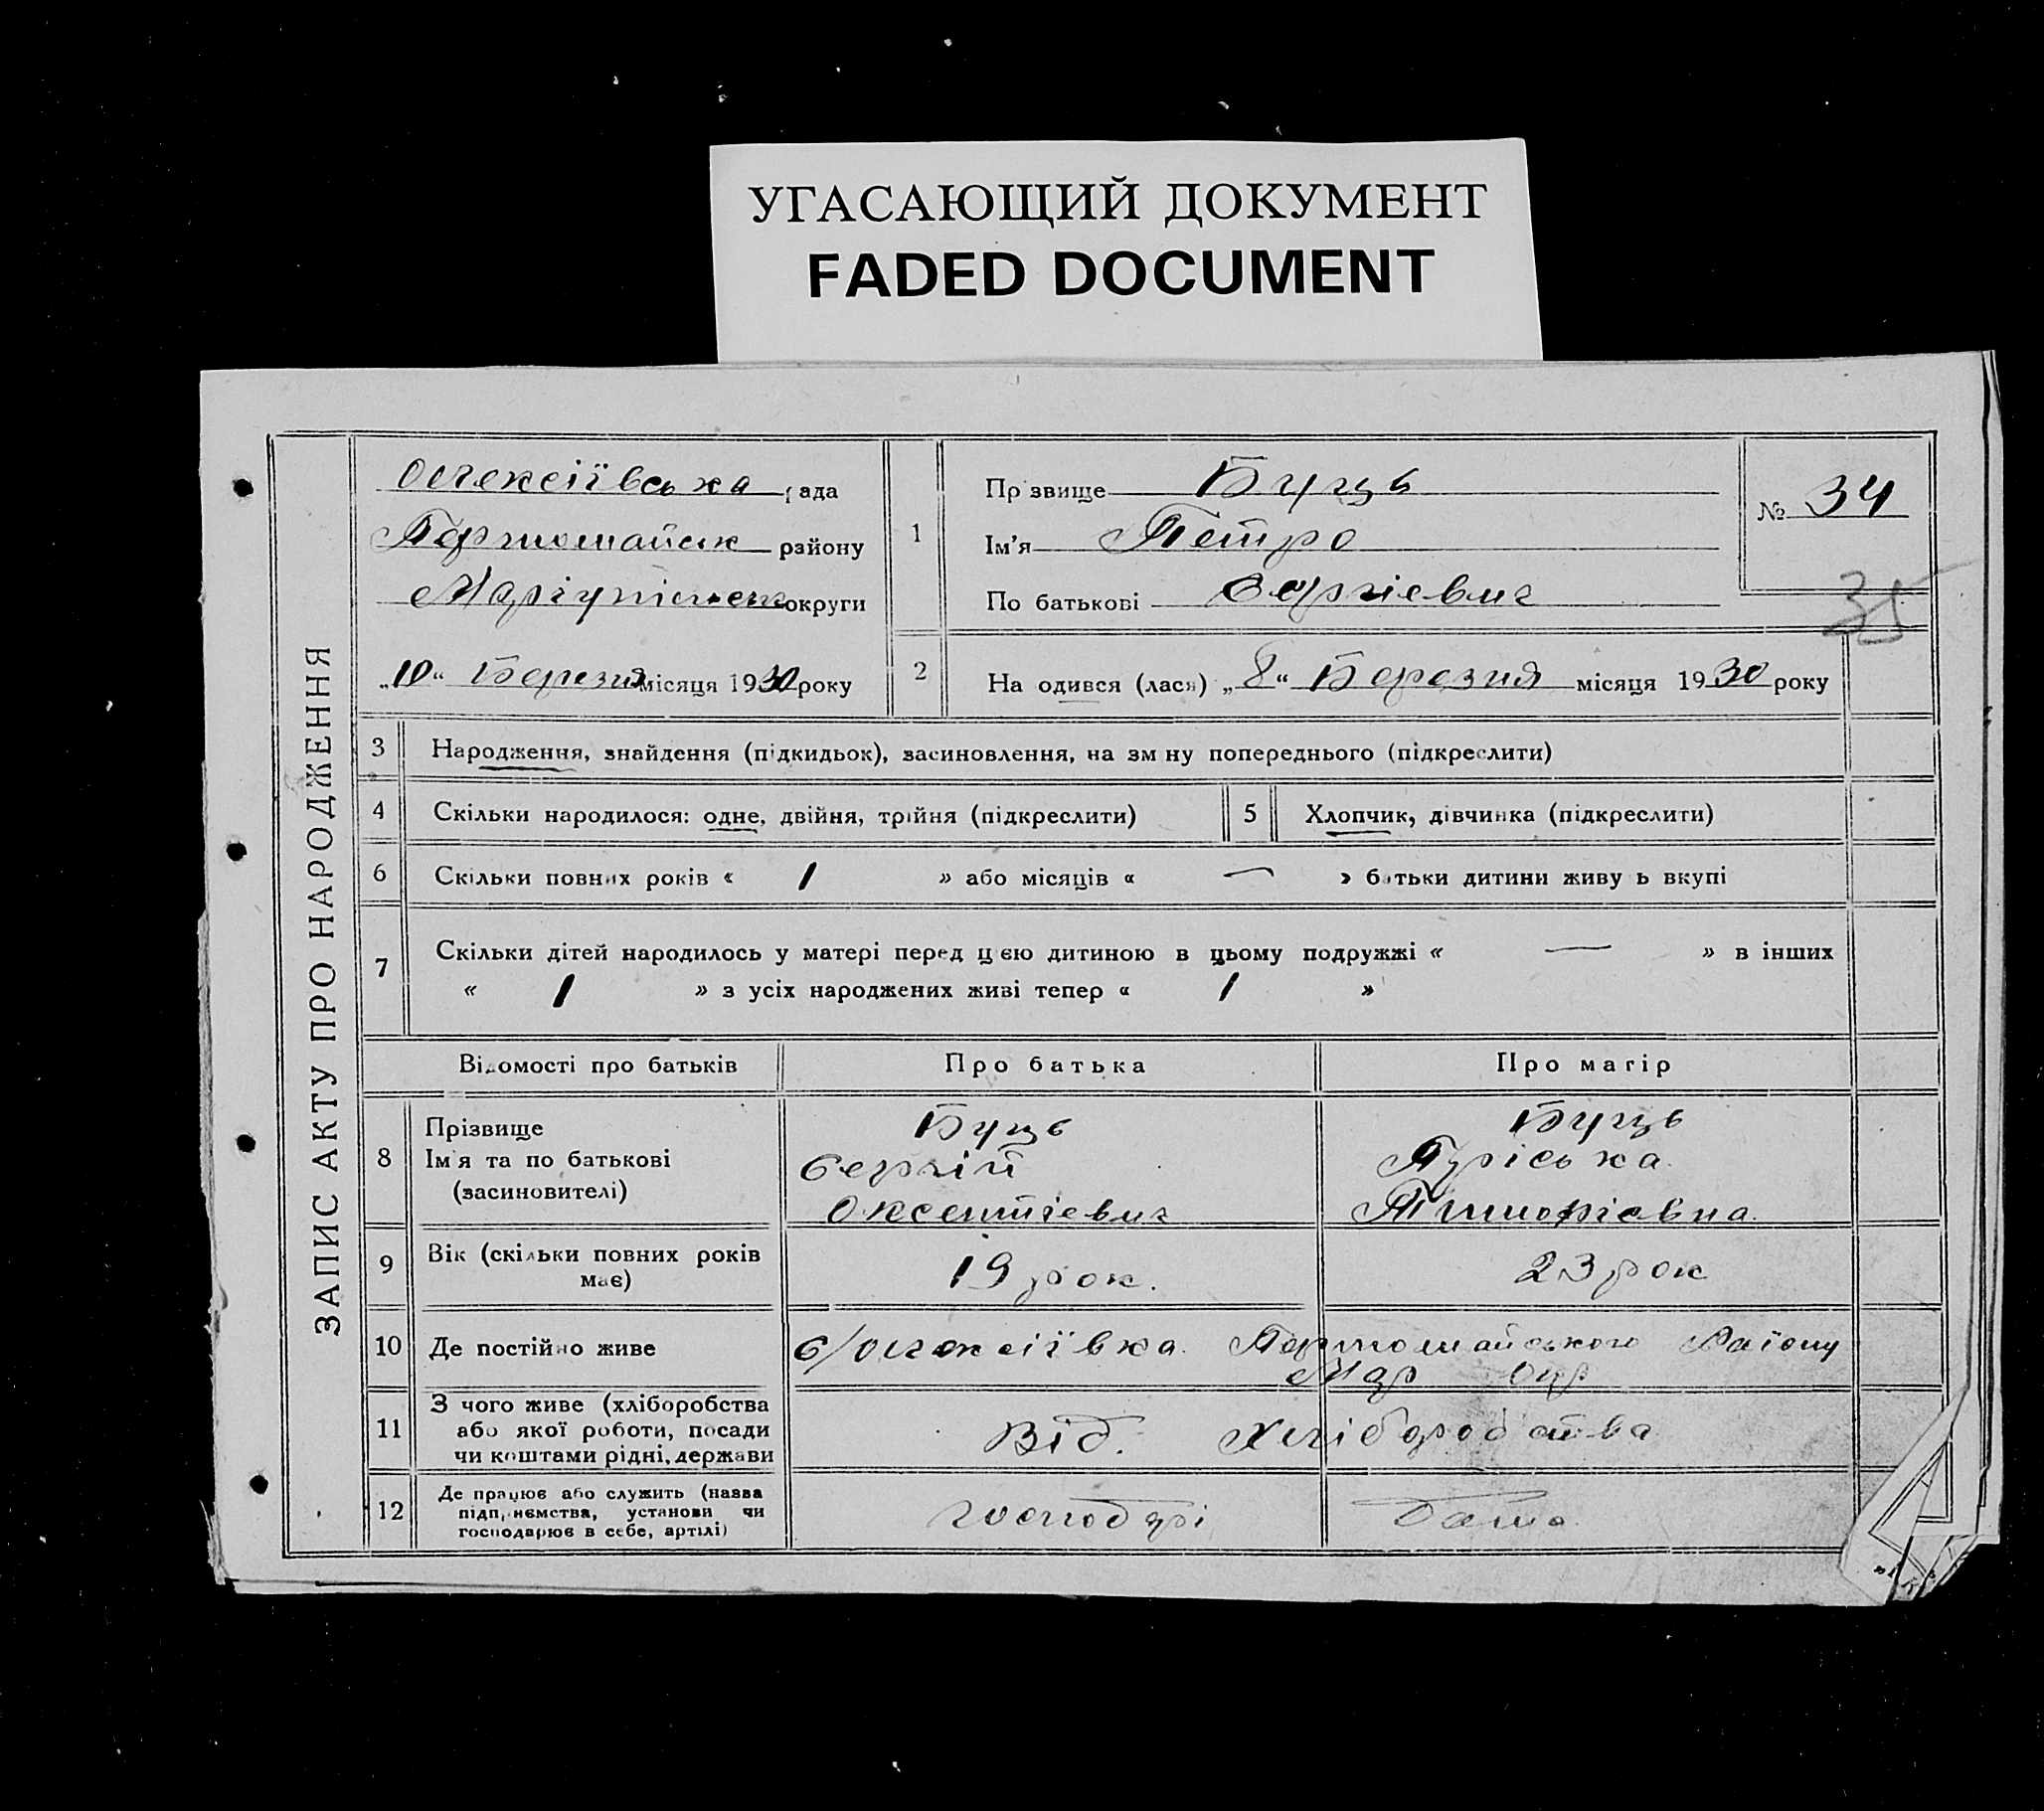 УГАСАЮЩИЙ ДОКУМЕНТ
FADED DOCUMENT
ЗАПИС АКТУ ПРО НАРОДЖЕННЯ
Олексіївська рада
Першомайськ району
Маріупільськ округи
„10“ Березня місяця 1930 року
1
Прзвище Буць
Ім'я Петро
По батькові Сергієвич
№ 34
35
2 На одився (лася) „8“ Березня місяця 1930 року
3 Народження, знайдення (підкидьок), засиновлення, на зм ну попереднього (підкреслити)
4 Скільки народилося: одне, двійня, трійня (підкреслити) 5 Хлопчик, дівчинка (підкреслити)
6 Скільки повних років « 1 » або місяців « — » батьки дитини живу ь вкупі
7 Скільки дітей народилось у матері перед цією дитиною в цьому подружжі « — » в інших
« 1 » з усіх народжених живі тепер « 1 »
Відомості про батьків Про батька Про матір
8 Прізвище Буць Буць
Ім'я та по батькові Сергій
(засиновителі) Оксентієвич
9 Вік (скільки повних років має) 19 рок. 23 рок
10 Де постійно живе С/Олексіївка Першомайського Району
Мар Окр
11 З чого живе (хліборобства
або якої роботи, посади
чи коштами рідні, держави Від. Хліборобства
12 Де працює або служить (назва
підприємства, установи чи
господарює в себе, артілі) господарі